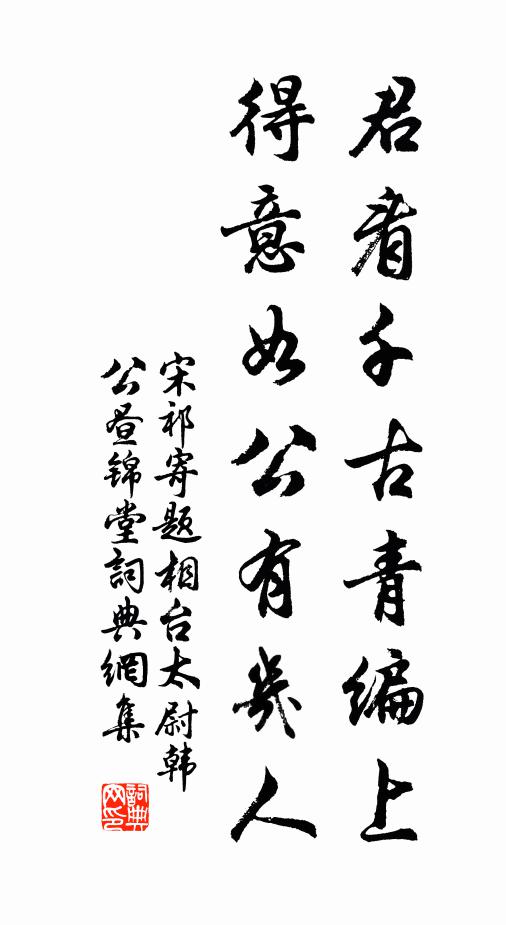 君看千古青编上
得意如公有幾人
宋祁寄题相台太尉韩
公昼锦堂詞典網集
詞典网印